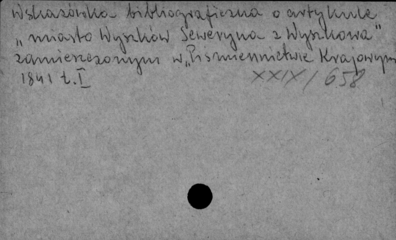 wskazówka bibliograficzna o artykule
„miasto Wyszków Seweryna z Wyszkowa"
zamieszczonym w „Piśmiennictwie Krajowym
1841 t. I
XXIX/658